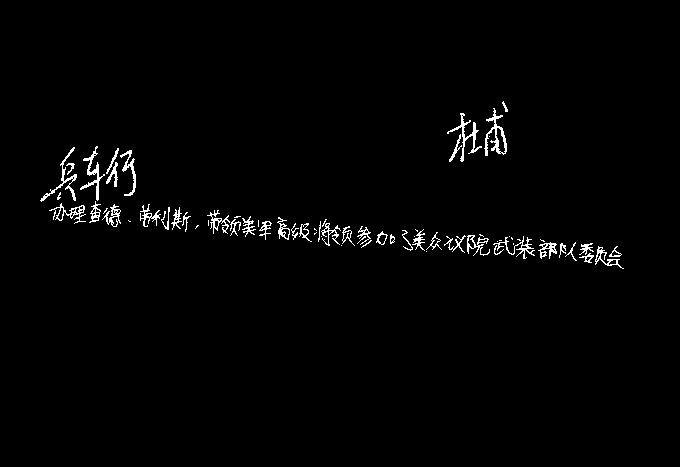 杜甫
兵车行
办理查德、弗利斯,带领美军高级将领参加了美众议院武装部队委员会